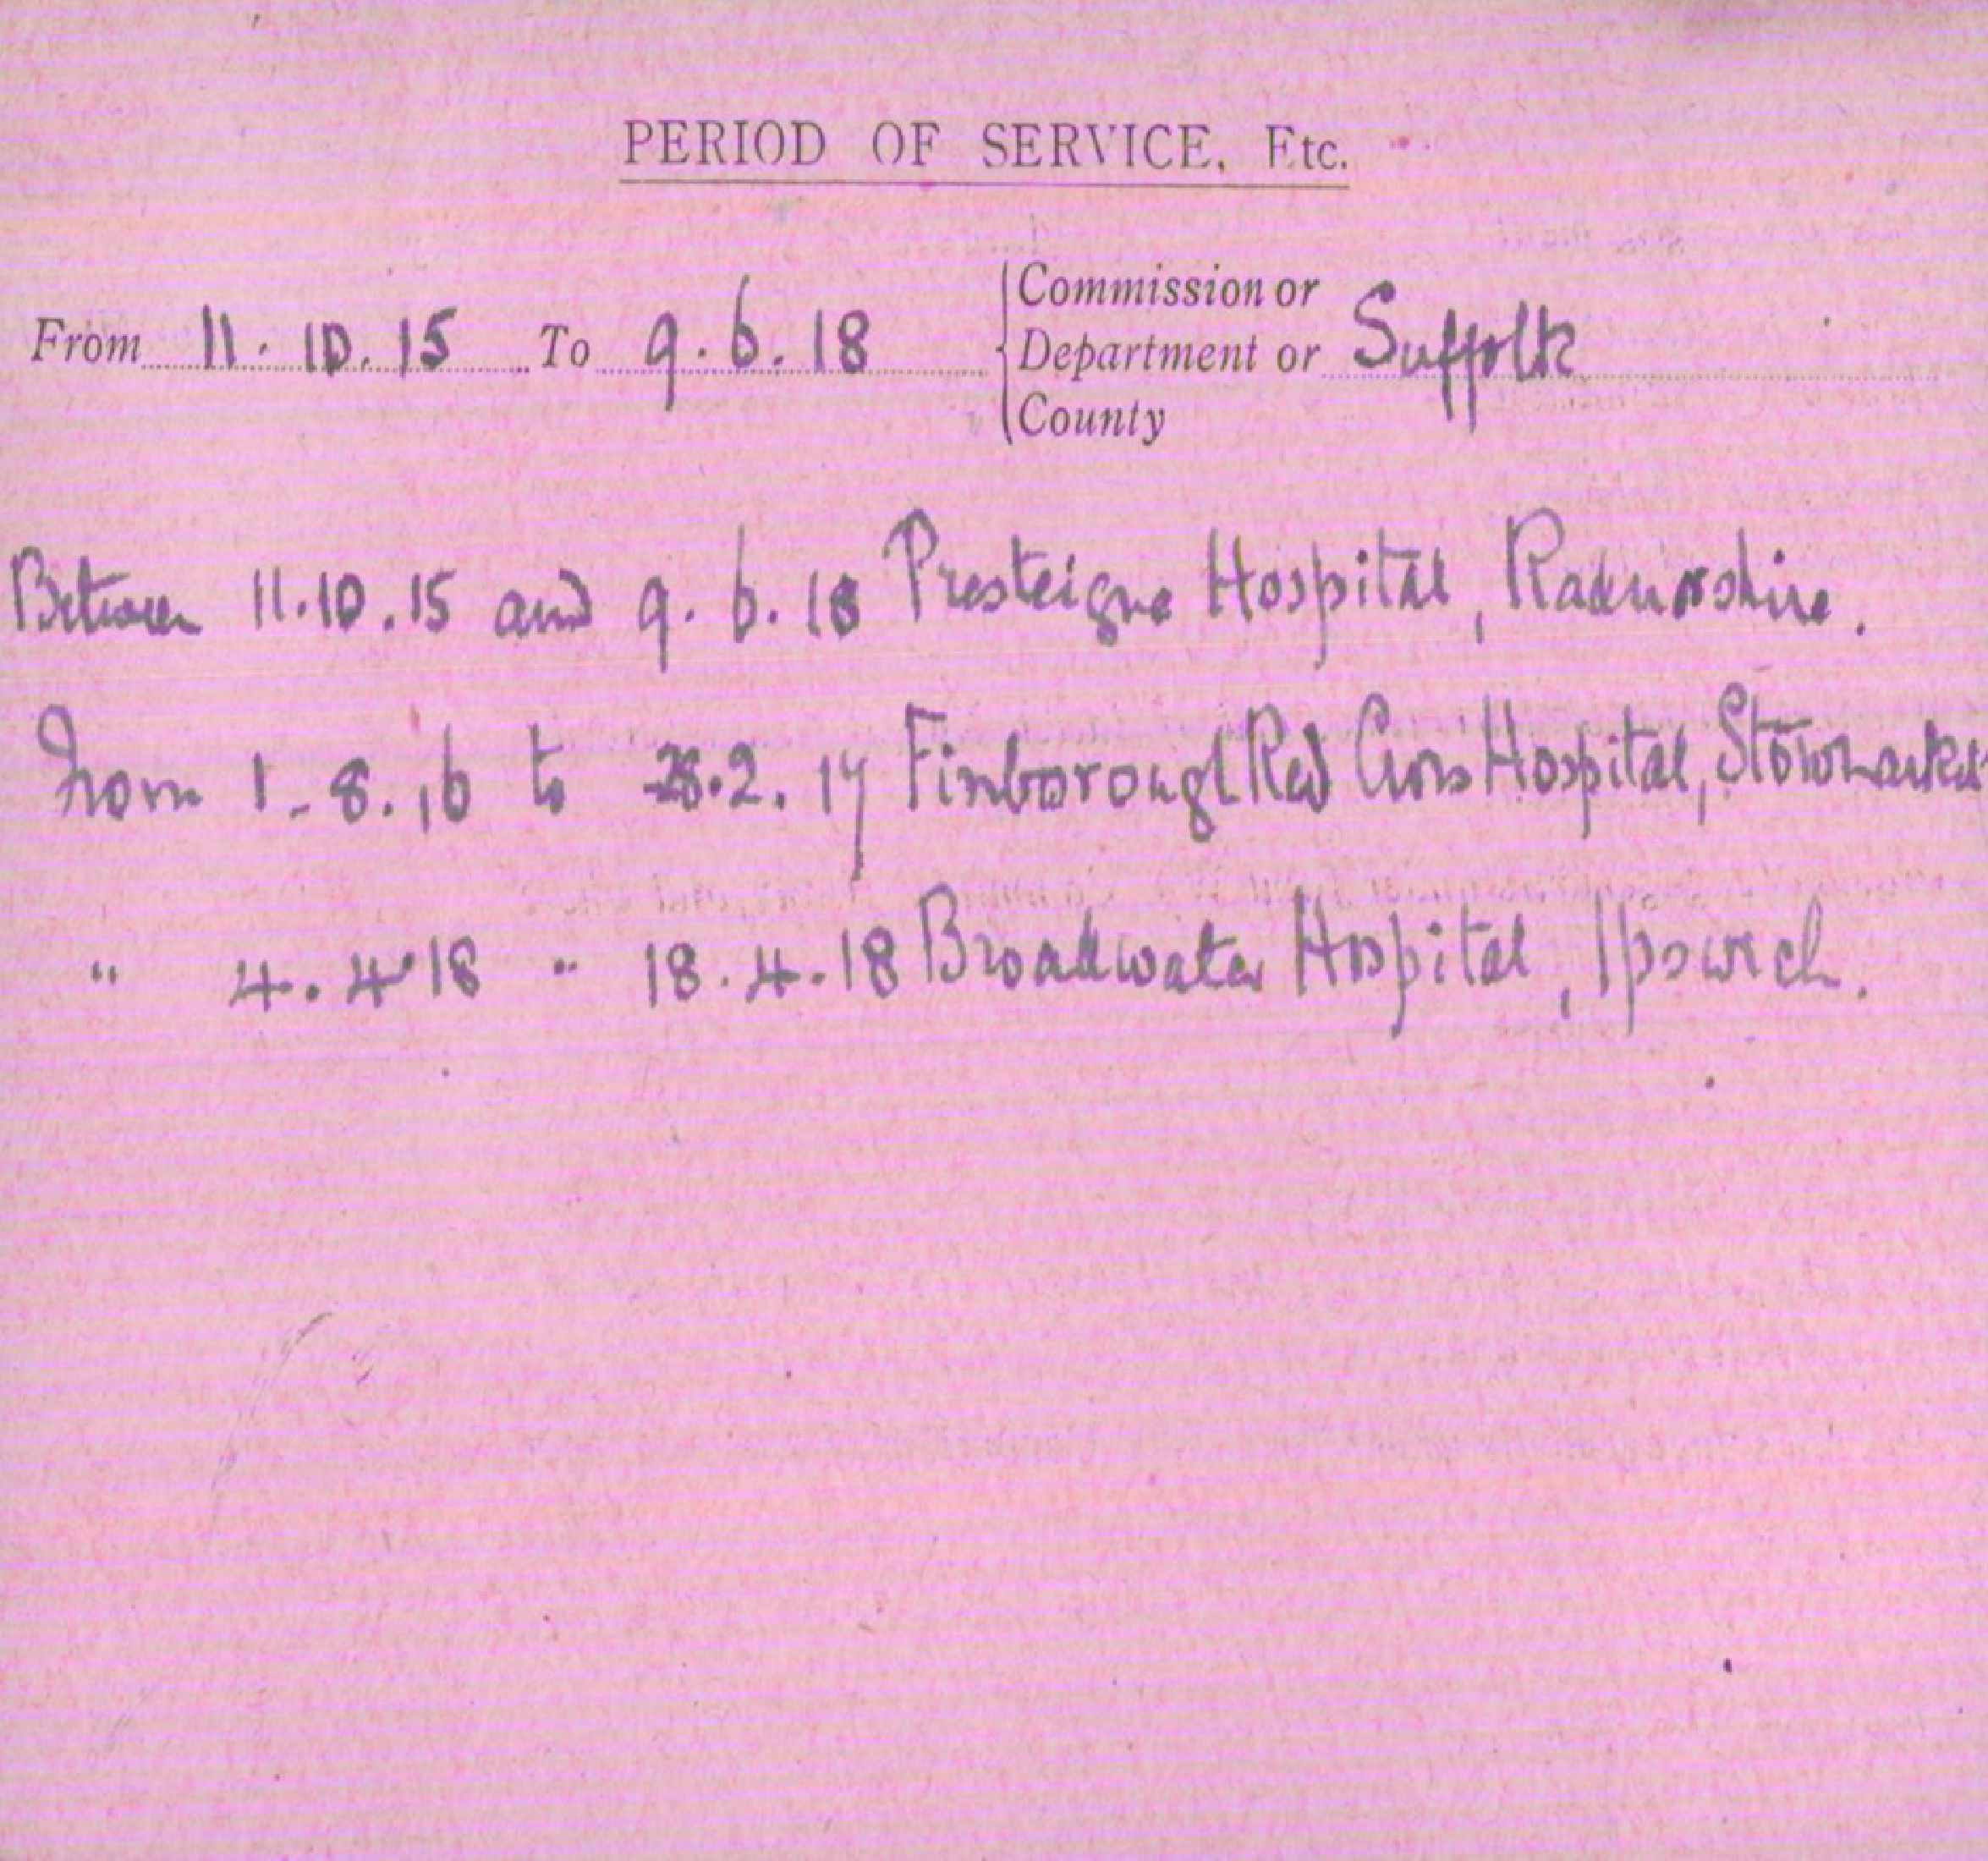 PERIOD OF SERVICE, Etc.
From 11.10.15 To 9.6.18 Commission or Department or County Suffolk
Between 11.10.15 and 9.6.18 Presteigne Hospital, Radnorshire.
From 1-8.16 to 28.2.17 Finborough Red Cross Hospital, Stowmarket
" 4.4.18 " 18.4.18 Broadwater Hospital, Ipswich.